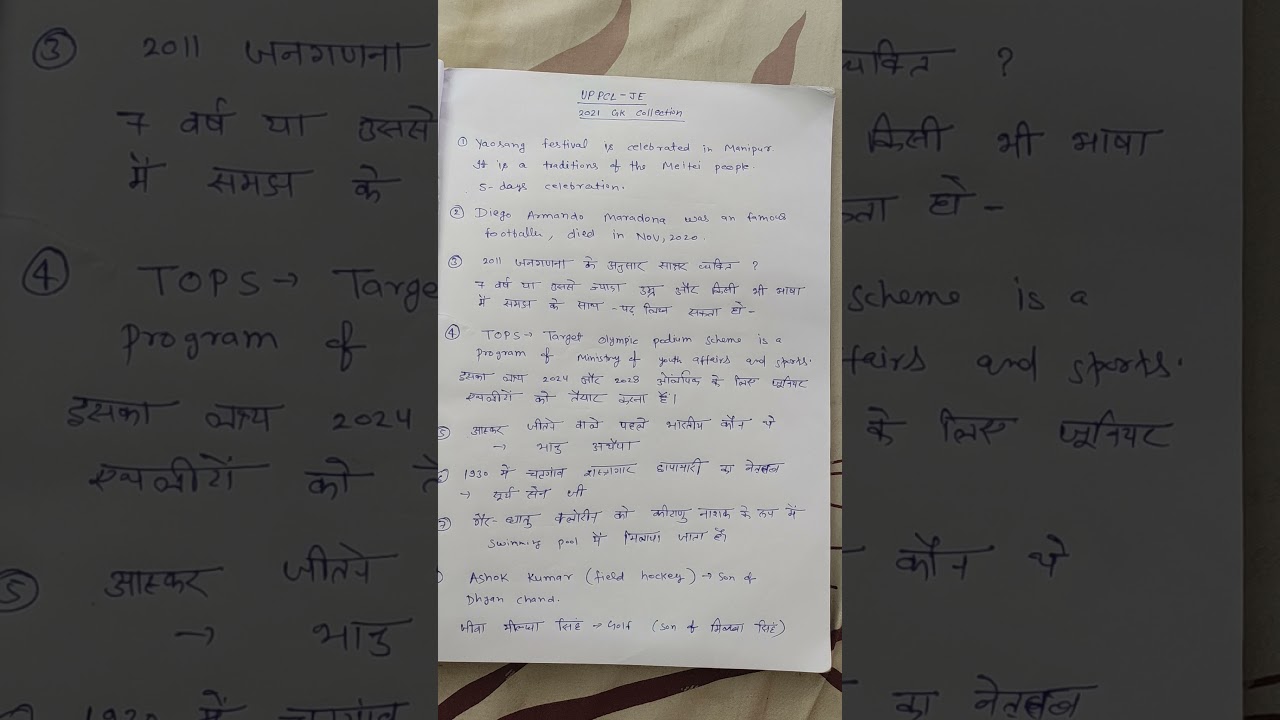 UPPCL-JE
2021 GK Collection
① Yaosang festival is celebrated in Manipur.
It is a traditions of the Meitei people.
5-days celebration.
② Diego Armando Maradona was an famous
footballer, died in Nov, 2020.
③ 2011 जनगणना के अनुसार साक्षर व्यक्ति ?
7 वर्ष या उससे ज्यादा उम्र और किसी भी भाषा
में समझ के साथ - पढ़ लिख सकता हो -
④ TOPS → Target olympic podium scheme is a
program of Ministry of youth affairs and sports.
इसका लक्ष्य 2024 और 2028 ओलंपिक के लिए जूनियर
एथलीटों को तैयार करना है।
⑤ आस्कर जीतने वाले पहले भारतीय कौन थे
→ भानु अथैया
1930 में चटगांव शस्त्रागार छापामारी का
→ सूर्य सेन जी
गैर-धातु क्लोरीन को कीटाणु नाशक के रूप में
Swimming pool में मिलाया जाता है।
Ashok Kumar (field hockey) → son of
Dhyan chand.
जीवा मील्खा सिंह → Golf (son of मिल्खा सिंह)